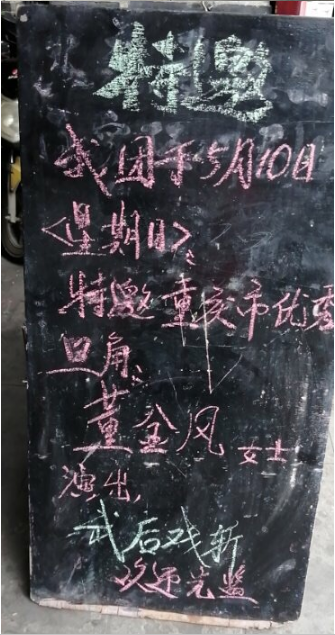 特邀
我团于5月10日
<星期日>、
特邀重庆市优秀
旦角:
董金风 女士
演出,
武后戏斩
欢迎光监